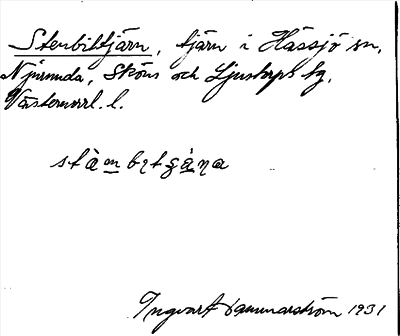 Stenbittjärn, tjärn i Hässjö sn,
Njurunda, Sköns och Ljustorps tg,
Västernorrl. l.
Ingvar Hammarström 1931